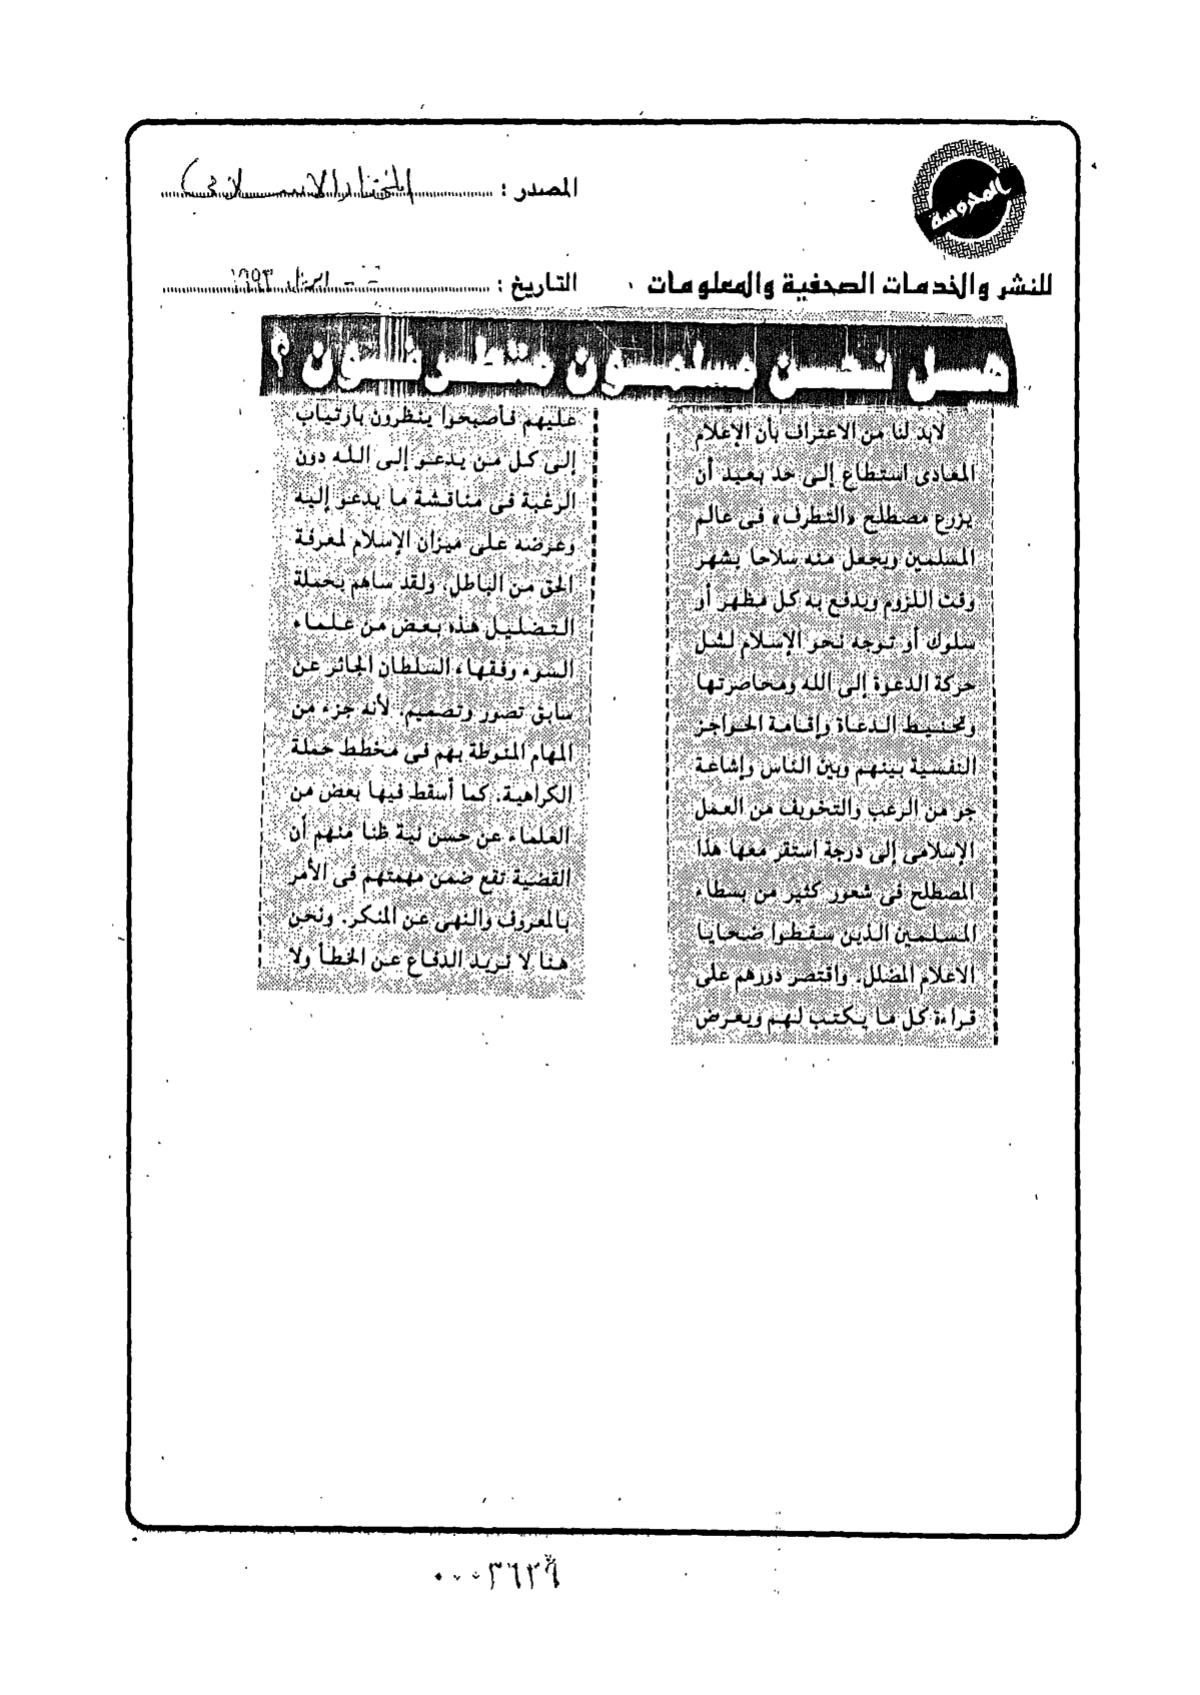 المحروسة
المصدر : المختار الاسلامى
للنشر والخدمات الصحفية والمعلومات
التاريخ : ابريل ١٩٩٣
هل نحن مسلمون متطرفون ؟
لابد لنا من الاعتراف بأن الإعلام
المعادى استطاع إلى حد بعيد أن
يزرع مصطلح «التطرف» فى عالم
المسلمين ويجعل منه سلاحا يشهر
وقت اللزوم ويدفع به كل مظهر أو
سلوك أو توجه نحو الإسلام لشل
حركة الدعوة إلى الله ومحاصرتها
وتحنيط الدعاة وإقامة الحواجز
النفسية بينهم وبين الناس وإشاعة
جو من الرعب والتخويف من العمل
الإسلامى إلى درجة استقر معها هذا
المصطلح فى شعور كثير من بسطاء
المسلمين الذين سقطوا ضحايا
الاعلام المضلل. واقتصر دورهم على
قراءة كل ما يكتب لهم ويعرض
عليهم فأصبحوا ينظرون بارتياب
إلى كل من يدعو إلى الله دون
الرغبة فى مناقشة ما يدعو إليه
وعرضه على ميزان الإسلام لمعرفة
الحق من الباطل، ولقد ساهم بحملة
التضليل هذه بعض من علماء
السوء وفقهاء السلطان الجائر عن
سابق تصور وتصميم. لأنه جزء من
المهام المنوطة بهم فى مخطط حملة
الكراهية. كما أسقط فيها بعض من
العلماء عن حسن نية ظنا منهم أن
القضية تقع ضمن مهمتهم فى الأمر
بالمعروف والنهى عن المنكر. ونحن
هنا لا نريد الدفاع عن الخطأ ولا